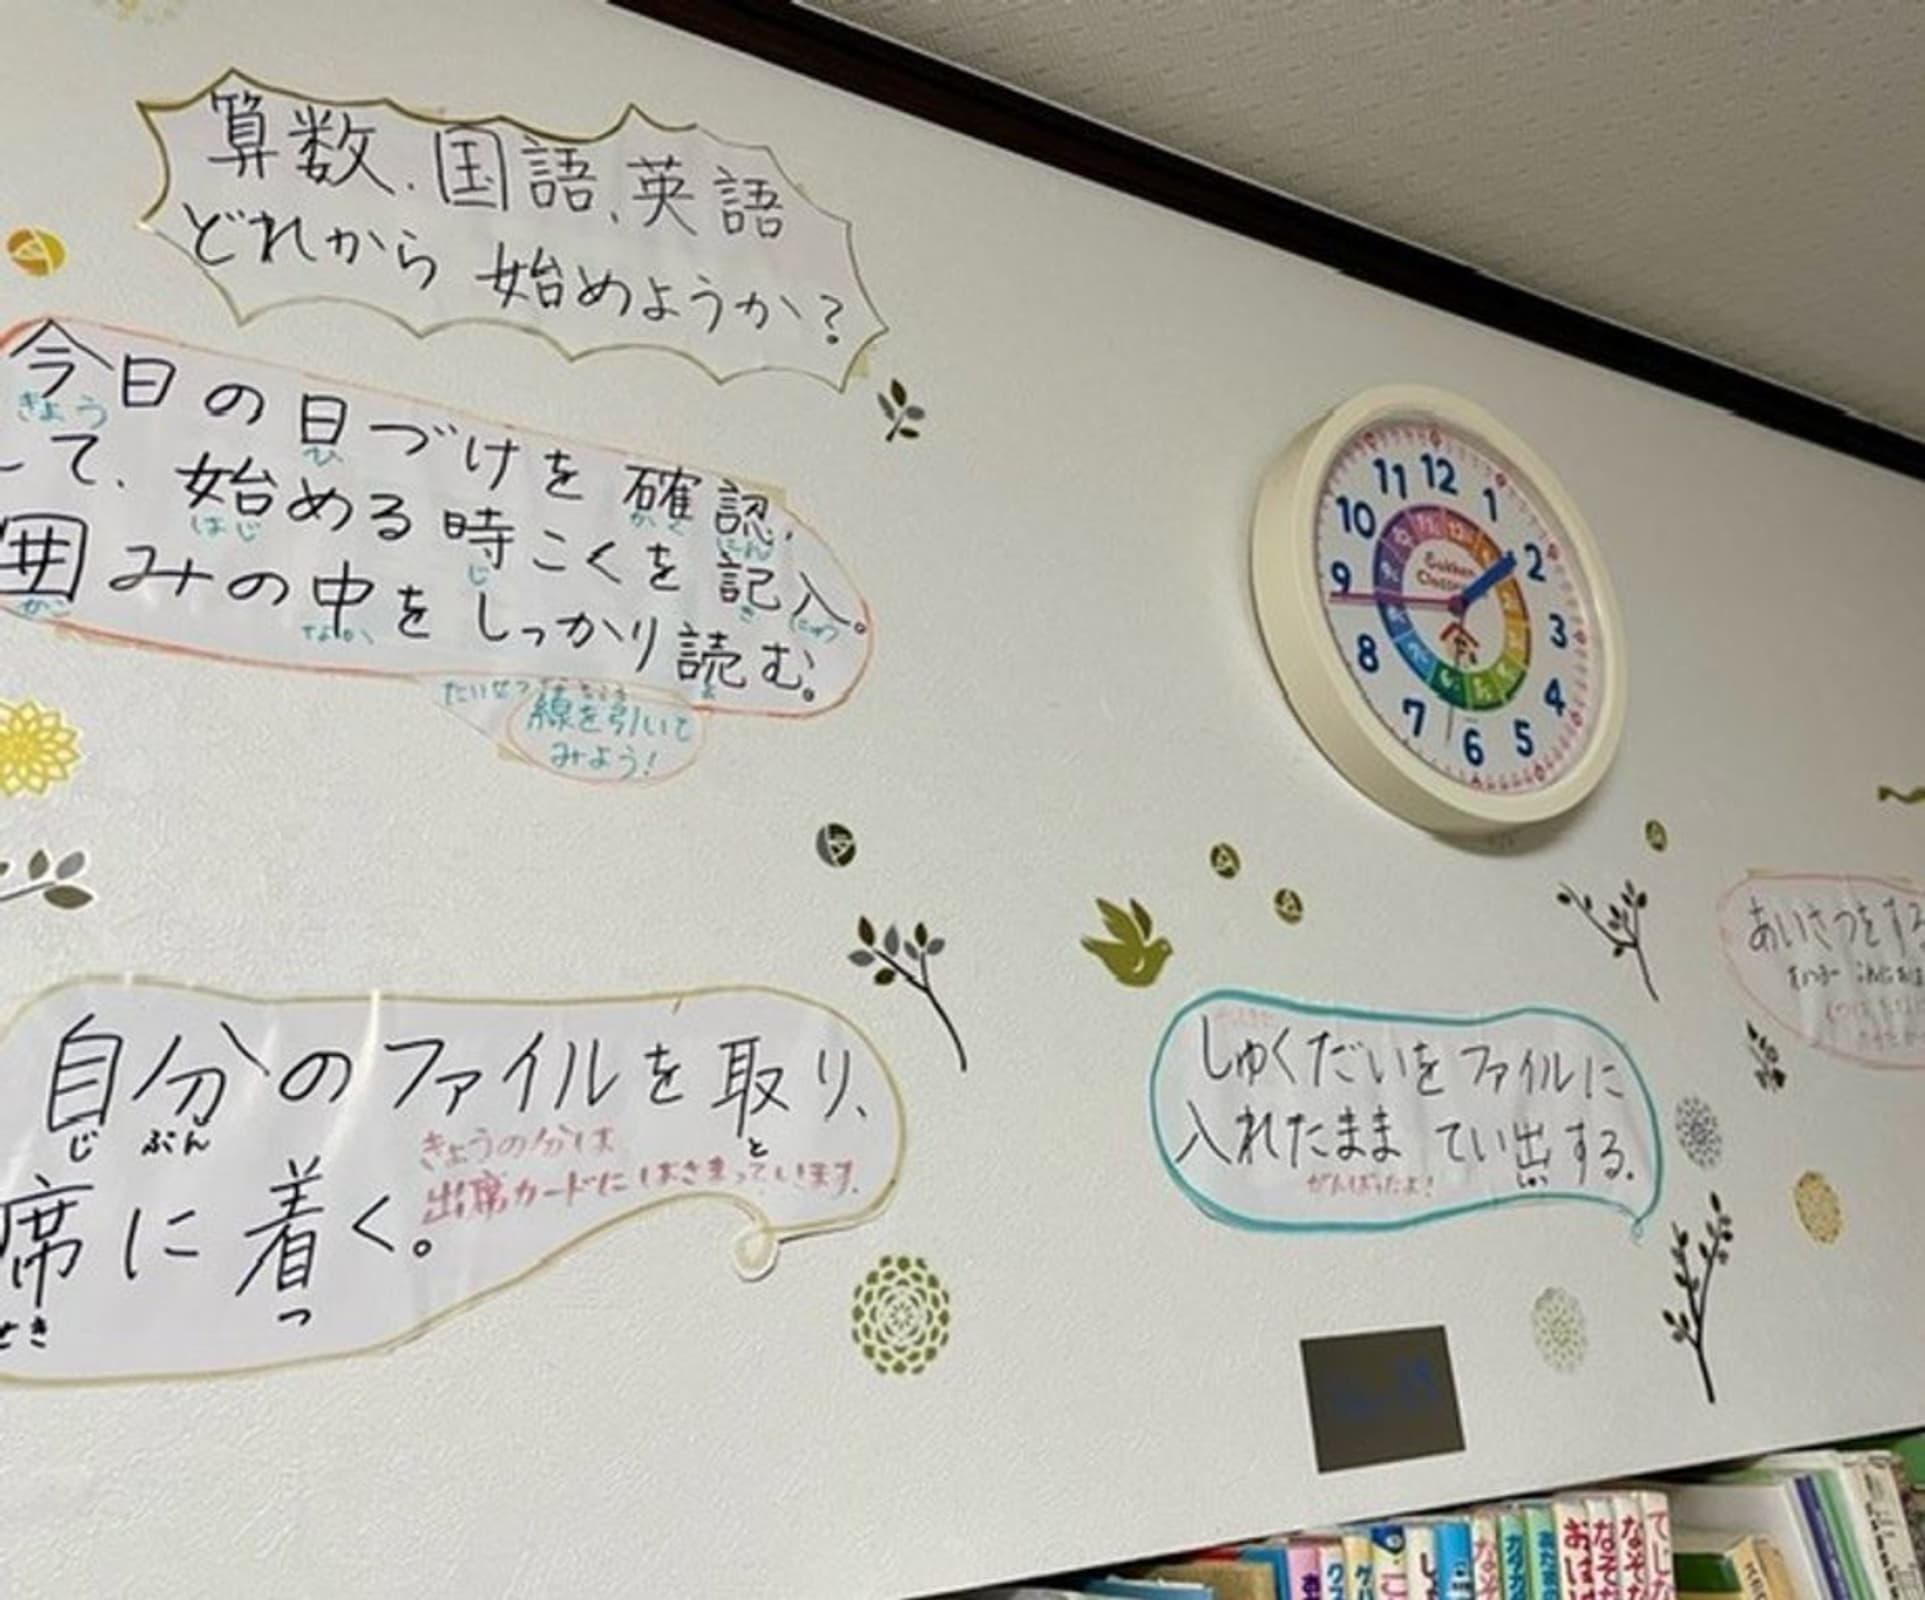 算数、国語、英語
どれから 始めようか?
今日の日づけを確認
きょう ひ かくにん
して、始める時こくを記入。
はじ じ きにゅう
囲みの中をしっかり読む。
かこ なか よ
線を引いて
みよう!
11 12 1
10 2
9 3
8 4
7 6 5
自分のファイルを取り、
じ ぶん と
きょうの分は
出席カードにはさまっています。
席に着く。
せき つ
しゅくだいをファイルに
入れたまま てい出する。
がんばったよ!
あいさつをする